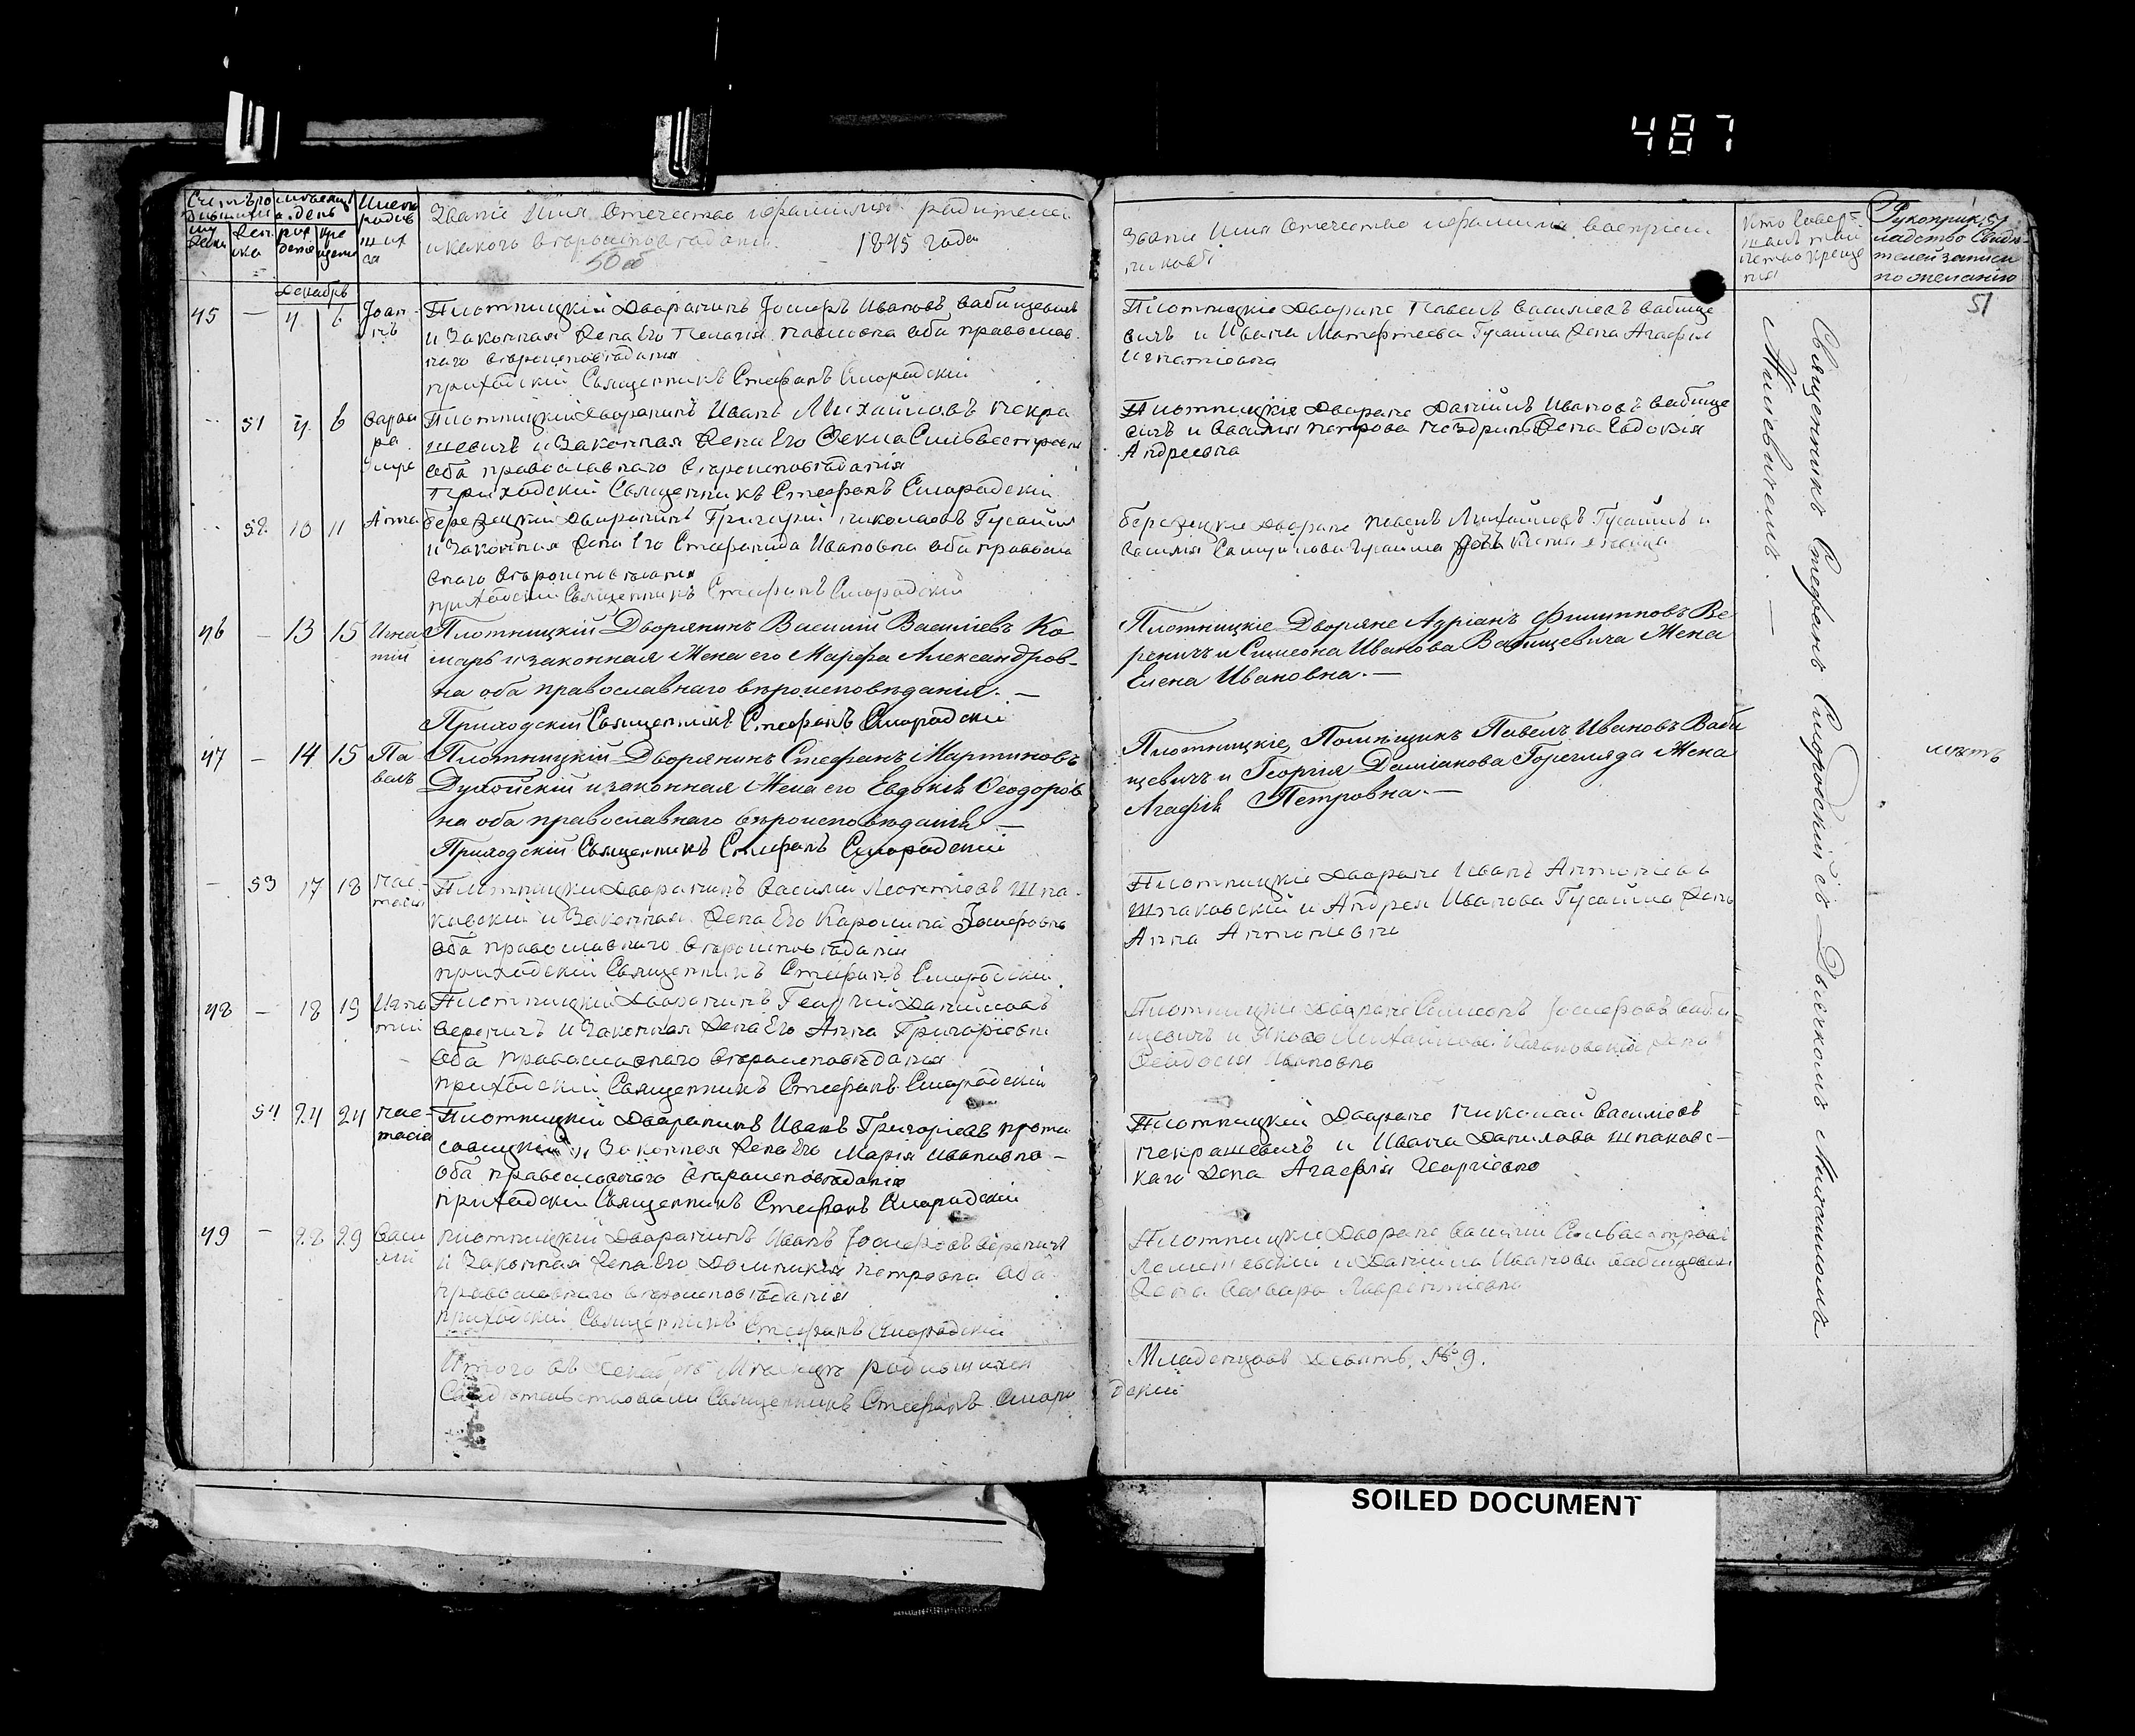 487
Счетъ ро
дившихся
муж
ска
жен
ска
месяцъ
и день
рож
денія
кре
щенія
Имена
родив
ших
ся
Званіе Имя Отечество и фамилія родителей
и какого вероисповеданія. 1845 года
Званіе Имя Отечество и фамилія воспріем
никовъ
Кто совер
шалъ таин
ство креще
нія
Рукоприк
ладство свиде
телей записи
по желанію
51
декабрь
45 — 4 6 Іоан
нъ
Плотницкій Дворянинъ Іосифъ Ивановъ Бабищевичъ
и Законная Жена Его Пелагія Павловна оба православ
наго вероисповеданія
приходскій Священникъ Стефанъ Смородскій
Плотницкіе Дворяне Павелъ Василіевъ Бабище
вичъ и Ивана Матфтеева Гусаима Жена Агафія
Игнатіевна
51 4 6 Варва
ра
Плотницкій Дворянинъ Иванъ Михайловъ Некра
шевичъ и Законная Жена Его Фекла Сильвестровна
оба православнаго вероисповеданія
Приходскій Священникъ Стефанъ Смородскій
Плотницкіе Дворяне Даніилъ Ивановъ Бабище
вичъ и Василія Петрова Жена Евдокія
Андреевна
52 10 11 Анна
Дворянинъ Григорій Николаевъ Гусаимъ
и Законная Жена Его Стефанида Ивановна оба правосла
внаго вероисповеданія
приходскій Священникъ Стефанъ Смородскій
Дворяне Павелъ Михайловъ Гусаимъ и
Василія Гусаима
46 — 13 15 Игна
тій
Плотницкій Дворянинъ Василій Василіевъ Ко
марь и законная Жена его Марфа Александров-
на оба православнаго вѣроисповѣданія. —
Приходскій Священникъ Стефанъ Смородскій
Плотницкіе Дворяне Адріанъ Филипповъ Ве
реничъ и Симеона Иванова Бабищевича Жена
Елена Ивановна. —
47 — 14 15 Па
велъ
Плотницкій Дворянинъ Стефанъ Мартиновъ
Духойскій и законная Жена его Евдокія Ѳеодоров
на оба православнаго вѣроисповѣданія —
Приходскій Священникъ Стефанъ Смородскій
Плотницкіе, Помѣщикъ Павелъ Ивановъ Баби
щевичъ и Георгія Даміанова Горегляда Жена
Агафія Петровна. —
— 53 17 18 Нас-
тасія
Плотницкій Дворянинъ Василій Леонтіевъ Шпа
ковскій и Законная Жена Его Каролина Іосифовна
оба православнаго вероисповеданія
приходскій Священникъ Стефанъ Смородскій
Плотницкіе Дворяне Иванъ Антоніевъ
Шпаковскій и Андрея Иванова Гусаима Жена
Анна Антоніевна
48 — 18 19 Игна
тій
Плотницкій Дворянинъ Георгій Даниловъ
Вереничъ и Законная Жена Его Анна Григоріевна
оба православнаго вероисповеданія
приходскій Священникъ Стефанъ Смородскій
Плотницкіе Дворяне Симеонъ Іосифовъ Баби
щевичъ и Якова Михайлова Жена
Феодосія Ивановна
54 24 24 Нас-
тасія
Плотницкій Дворянинъ Иванъ Григоріевъ Прота
савицкій и Законная Жена Его Марія Ивановна —
оба православнаго вероисповеданія
приходскій Священникъ Стефанъ Смородскій
Плотницкій Дворяне Николай Василіевъ
Некрашевичъ и Ивана Данилова Шпаковс-
каго Жена Агафія Георгіевна
49 — 28 29 Васи
лій
Плотницкій Дворянинъ Иванъ Іосифовъ Вереничъ
и Законная Жена Его Доминикія Петровна оба
православнаго вероисповеданія
приходскій Священникъ Стефанъ Смородскій
Плотницкіе Дворяне Василій Сильвестровъ
и Даніила Иванова Бабищевича
Жена Варвара Лаврентіевна
Итого въ Декабрѣ Месяцѣ родившихся
Младенцовъ Девять, № 9.
Свидетельствовали Священникъ Стефанъ Смаро
дскій
Священникъ Стефанъ Смородскій съ Дьячкомъ Михаиломъ
SOILED DOCUMENT